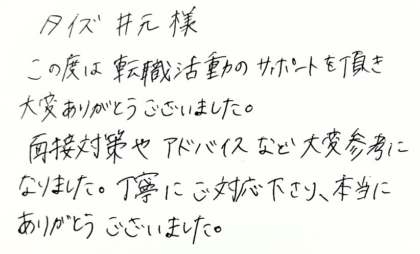 タイズ 井元 様
この度は 転職活動の サポートを 頂き
大変ありがとうございました。
面接対策や アドバイス など 大変参考に
なりました。丁寧に ご対応下さり、本当に
ありがとう ございました。